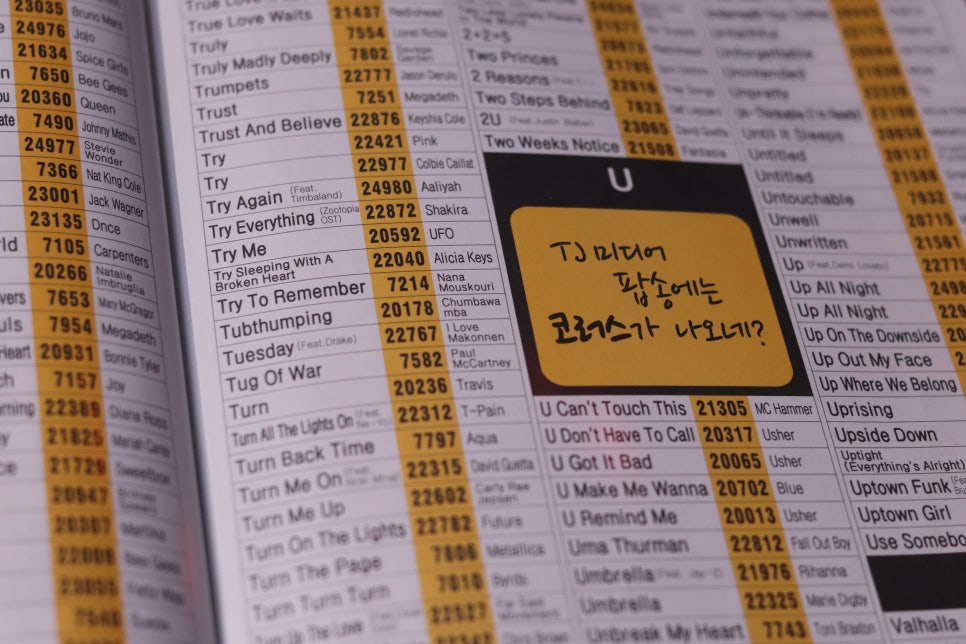 23035 Bruno Mars
24976 Jojo
21634 Spice Girls
7650 Bee Gees
20360 Queen
7490 Johnny Mathis
24977 Stevie Wonder
7366 Nat King Cole
23001 Jack Wagner
23135 Dnce
7105 Carpenters
20266 Natalie Imbruglia
7653 Mary McGregor
7954 Megadeth
Heart 20931 Bonnie Tyler
7157 Joy
22389 Diana Ross
21825 Mariah Carey
21729 Sweetbox
20947
20307 Martika
22009
True Love Waits 21437 Radiohead
Truly 7554 Lionel Richie
Truly Madly Deeply 7802 Savage Garden
Trumpets 22777 Jason Derulo
Trust 7251 Megadeth
Trust And Believe 22876 Keyshia Cole
Try 22421 Pink
Try 22977 Colbie Caillat
Try Again (Feat. Timbaland) 24980 Aaliyah
Try Everything (Zootopia OST) 22872 Shakira
Try Me 20592 UFO
Try Sleeping With A Broken Heart 22040 Alicia Keys
Try To Remember 7214 Nana Mouskouri
Tubthumping 20178 Chumbawamba
Tuesday (Feat.Drake) 22767 I Love Makonnen
Tug Of War 7582 Paul McCartney
Turn 20236 Travis
Turn All The Lights On (Feat. Ne-Yo) 22312 T-Pain
Turn Back Time 7797 Aqua
Turn Me On 22315 David Guetta
Turn Me Up 22602 Carly Rae Jepsen
Turn On The Lights 22782 Future
Turn The Page 7806 Metallica
Turn Turn Turn 7010 Byrds
Turn Up The Love 22527 Far East Movement
Chris Brown
2+2=5
Two Princes 21785
2 Reasons 22616 Trey Songz
Two Steps Behind 7823 Def Leppard
2U (Feat.Justin Bieber) 23065 David Guetta
Two Weeks Notice 21508 Fantasia
U
TJ 미디어
팝송에는
코러스가 나오네?
U Can't Touch This 21305 MC Hammer
U Don't Have To Call 20317 Usher
U Got It Bad 20065 Usher
U Make Me Wanna 20702 Blue
U Remind Me 20013 Usher
Uma Thurman 22812 Fall Out Boy
Umbrella (Feat. Jay-Z) 21976 Rihanna
Umbrella 22325 Marie Digby
Unbreak My Heart 7743 Toni Braxton
Unfaithful
Unforgettable
Unintended
Unpretty
Until It Sleeps
Untitled
Untitled 21588
Untouchable 7932
Unwell 20715
Unwritten 21561
Up (Feat.Demi Lovato) 22775
Up All Night
Up All Night
Up On The Downside
Up Out My Face
Up Where We Belong
Uprising
Upside Down
Uptight (Everything's Alright)
Uptown Funk
Uptown Girl
Use Somebo
Valhalla